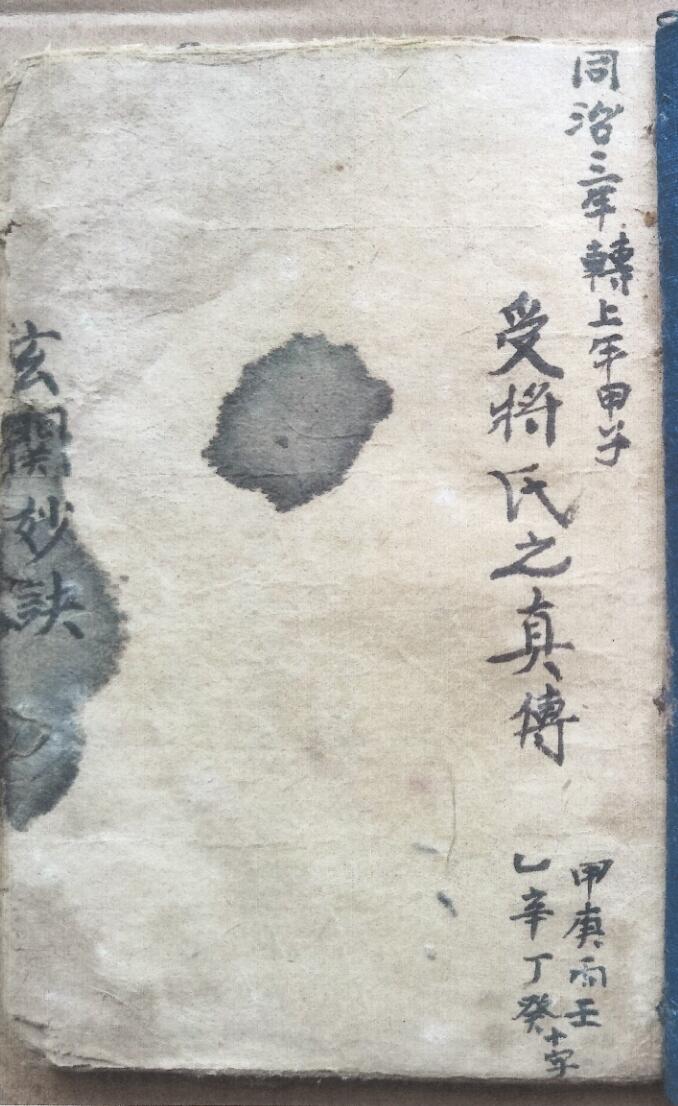 同治三年轉上午甲子
受將氏之真傳
甲庚丙壬
乙辛丁癸十字
玄關妙訣